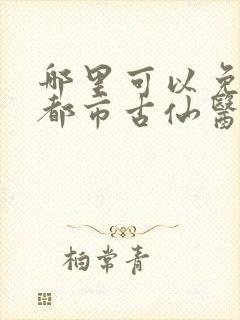 哪里可以免
都市古仙醫
柏常青